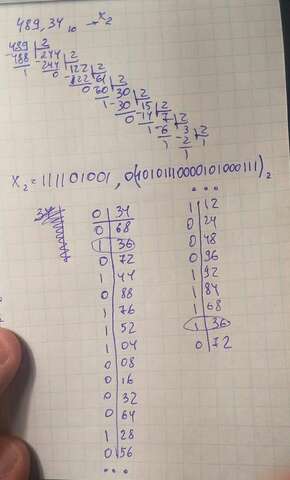 489,34₁₀ → X₂
489 | 2
-488 | 244 | 2
1 -244 | 122 | 2
0 -122 | 61 | 2
0 -60 | 30 | 2
1 -30 | 15 | 2
0 -14 | 7 | 2
1 -6 | 3 | 2
1 -2 | 1
1
X₂ = 111101001, 0(10101110000101000111)₂
0 | 34
0 | 68
1 | 36
0 | 72
1 | 44
0 | 88
1 | 76
1 | 52
1 | 04
0 | 08
0 | 16
0 | 32
0 | 64
1 | 28
0 | 56
...
...
1 | 12
0 | 24
0 | 48
0 | 96
1 | 92
1 | 84
1 | 68
1 | 36
0 | 72